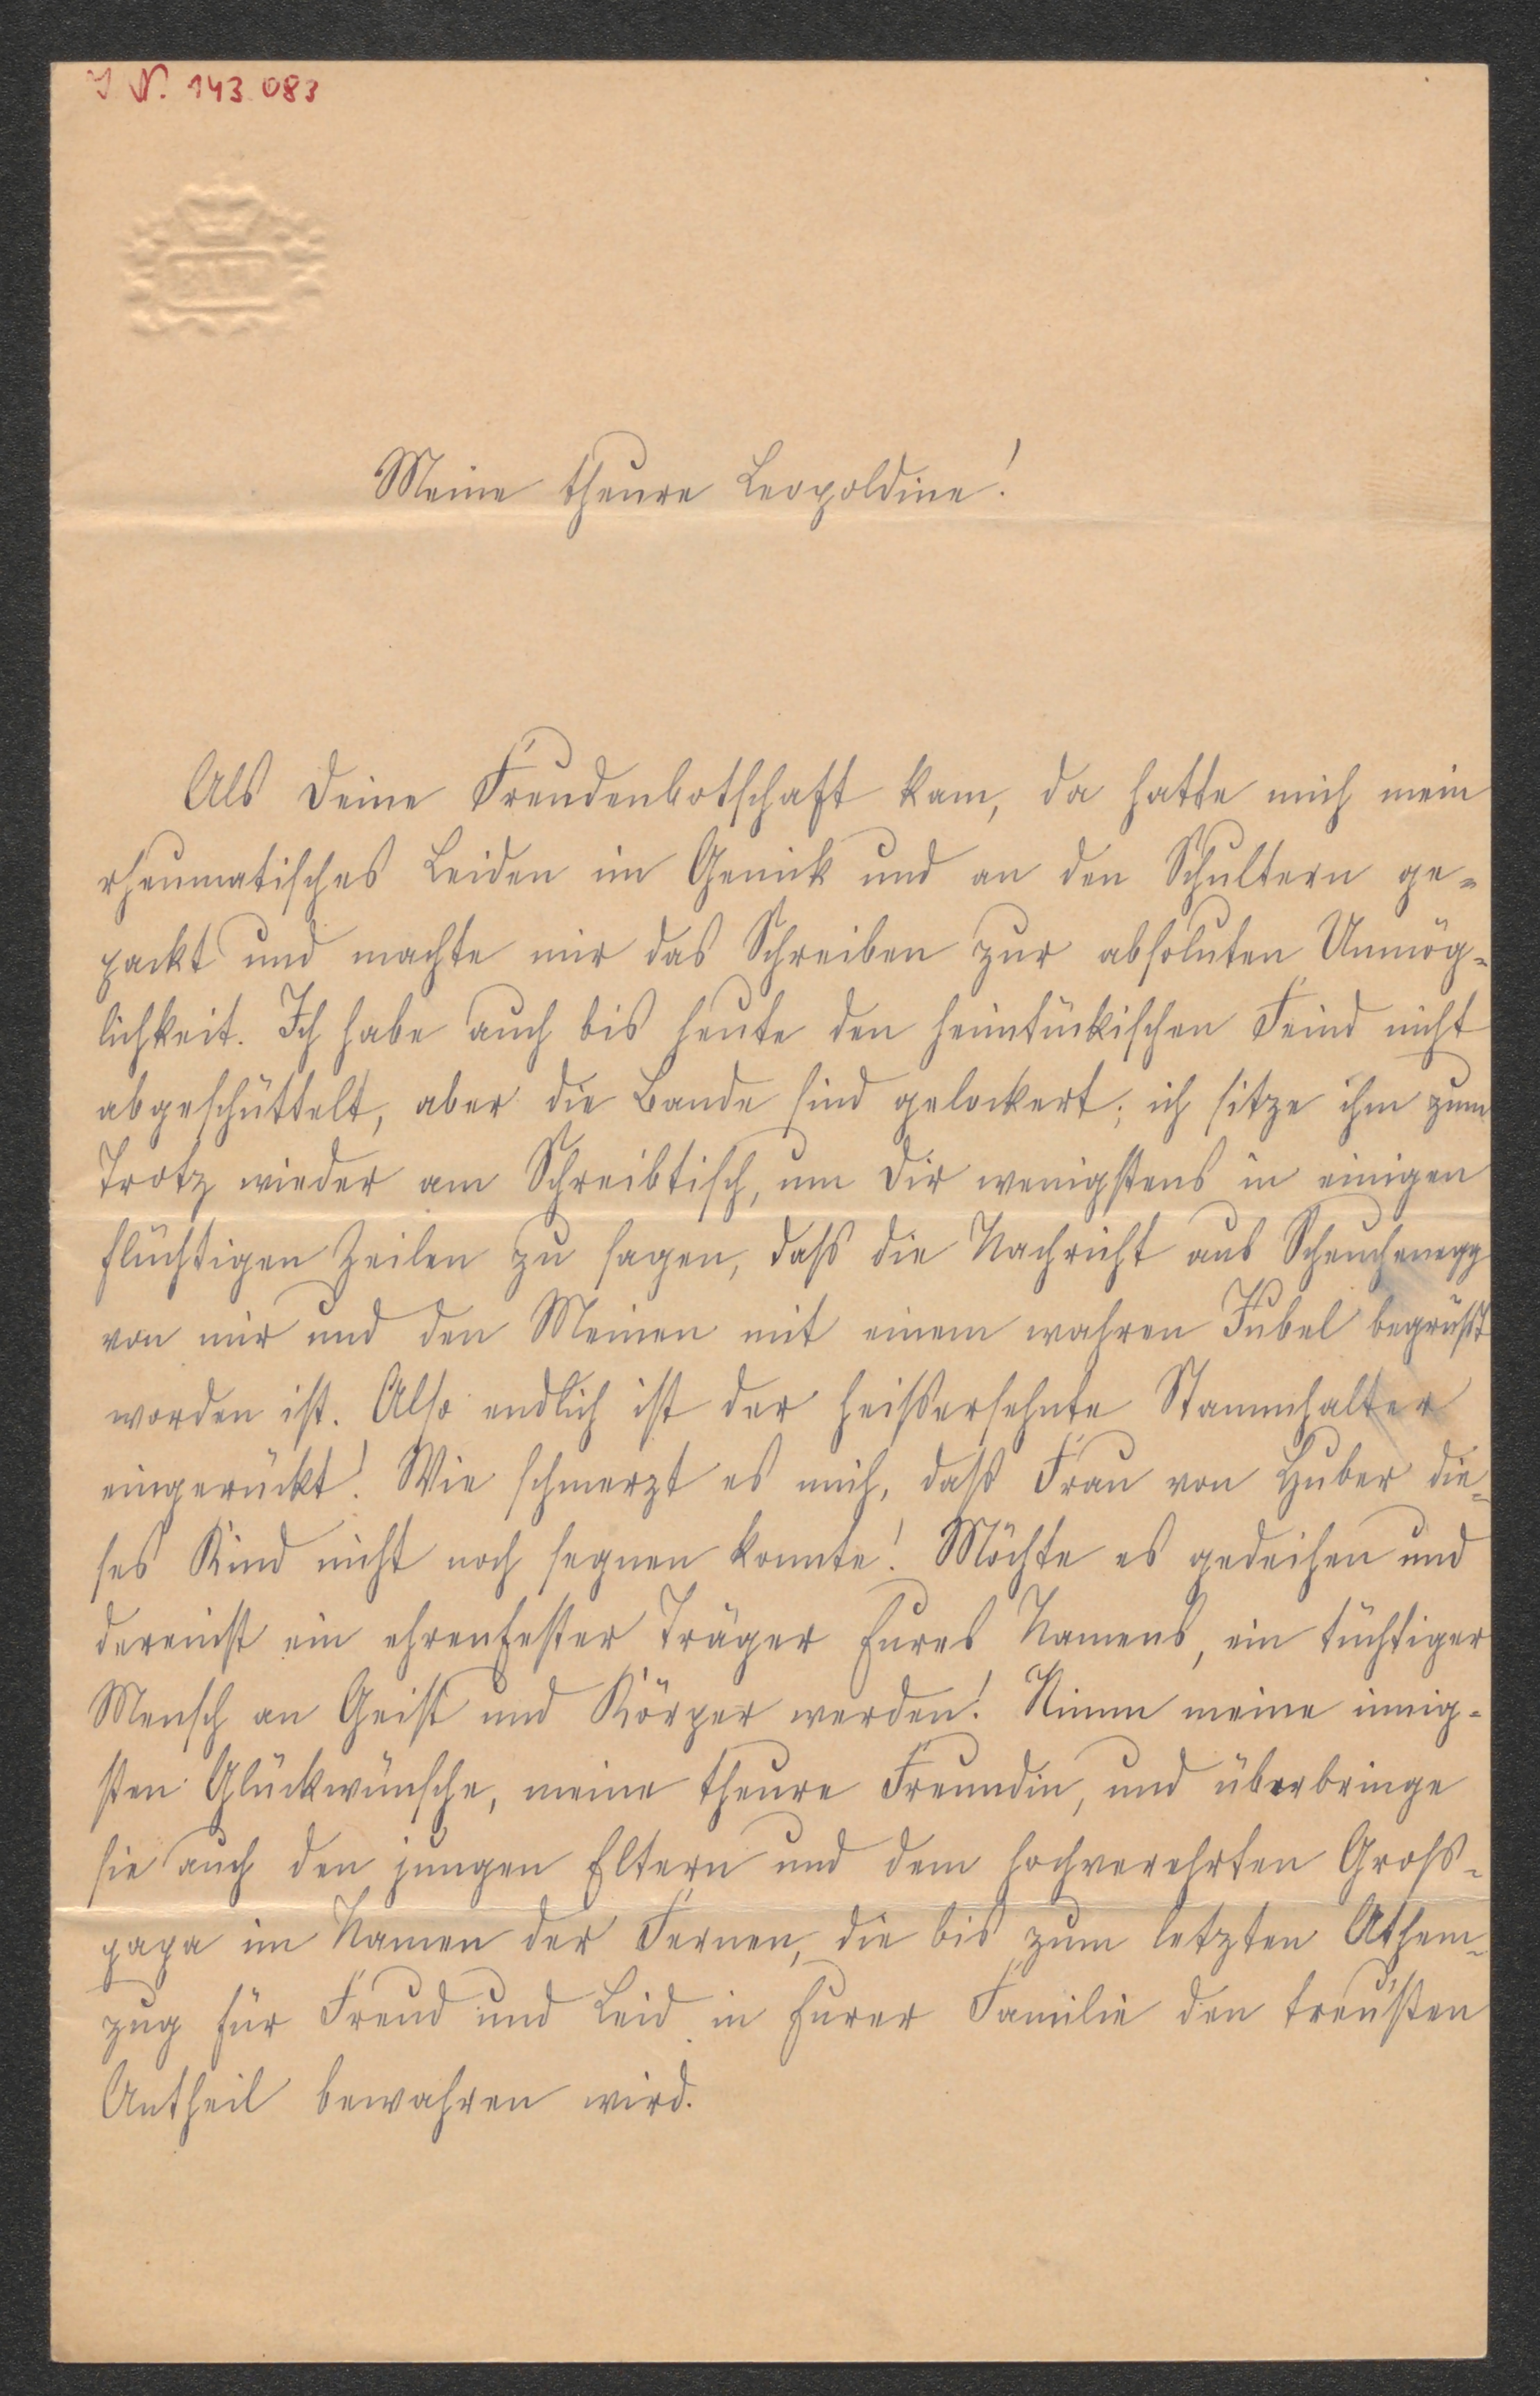 I. N. 143.083
Meine theure Leopoldine!
Als Deine Freudenbotschaft kam, da hatte mich mein
rheumatisches Leiden im Genick und an den Schultern ge-
packt und machte mir das Schreiben zur absoluten Unmög-
lichkeit. Ich habe auch bis heute den heimtückischen Feind nicht
abgeschüttelt, aber die Bande sind gelockert; ich sitze ihm zum
Trotz wieder am Schreibtisch, um Dir wenigstens in einigen
flüchtigen Zeilen zu sagen, daß die Nachricht aus Scheuchenegg
von mir und den Meinen mit einem wahren Jubel begrüßt
worden ist. Also endlich ist der heißersehnte Stammhalter
eingerückt! Wie schmerzt es mich, daß Frau von Huber die-
ses Kind nicht noch segnen konnte! Möchte es gedeihen und
dereinst ein ehrenfester Träger Eures Namens, ein tüchtiger
Mensch an Geist und Körper werden! Nimm meine innig-
sten Glückwünsche, meine theure Freundin, und überbringe
sie auch den jungen Eltern und dem hochverehrten Groß-
papa im Namen der Fernen, die bis zum letzten Athem-
zug für Freud und Leid in Eurer Familie den treu'sten
Antheil bewahren wird.